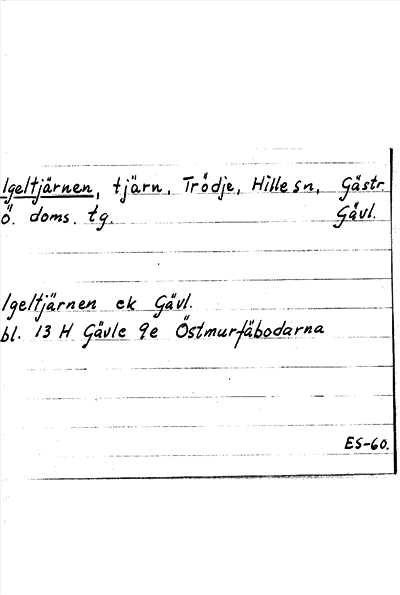 Igeltjärnen, tjärn, Trödje, Hille sn, Gästr.
Ö. doms. tg. Gävl.
Igeltjärnen ek Gävl.
bl. 13 H Gävle 9e Östmurfäbodarna
ES-60.